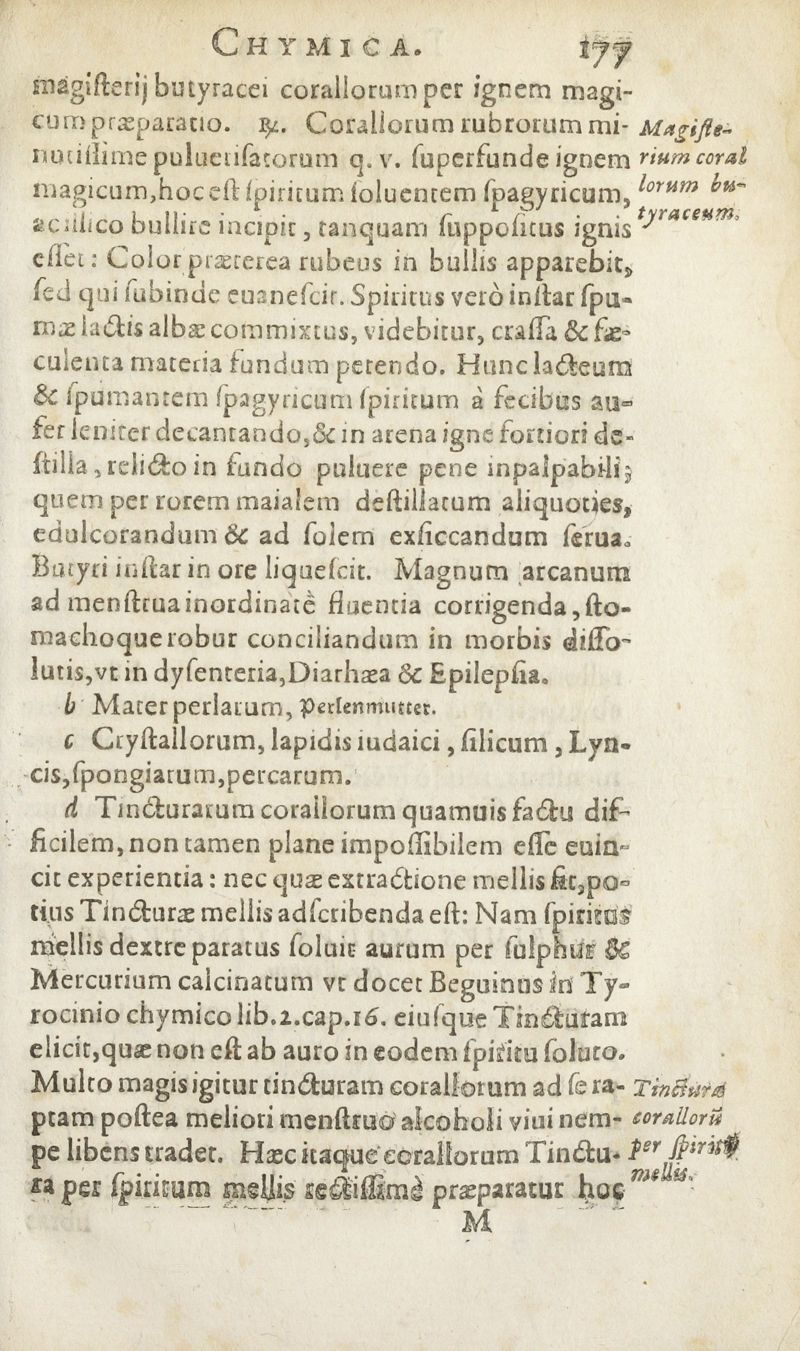 CHYMICA. 177
magiſterij butyracei corallorum per ignem magi-
cum præparatio. ℞. Corallorum rubrorum mi-
nutiſſime pulueriſatorum q. v. ſuperfunde ignem
magicum, hoc eſt ſpiritum ſoluentem ſpagyricum,
Magiſte-
rium coral
lorum bu-
tyraceum.
ac illico bullire incipit, tanquam ſuppoſitus ignis
eſſet: Color præterea rubeus in bullis apparebit,
ſed qui ſubinde euaneſcit. Spiritus verò inſtar ſpu-
mæ lactis albæ commixtus, videbitur, craſſa & fæ-
culenta materia fundum petendo. Hunc lacteum
& ſpumantem ſpagyricum ſpiritum à fecibus au-
fer leniter decantando, & in arena igne fortiori de-
ſtilla, relicto in fundo puluere pene inpalpabili;
quem per rorem maialem deſtillatum aliquoties,
edulcorandum & ad ſolem exſiccandum ſerua.
Butyri inſtar in ore liqueſcit. Magnum arcanum
ad menſtrua inordinatè fluentia corrigenda, ſto-
machoque robur conciliandum in morbis diſſo-
lutis, vt in dyſenteria, Diarhæa & Epilepſia.
b Mater perlarum, Perlenmutter.
c Cryſtallorum, lapidis iudaici, ſilicum, Lyn-
cis, ſpongiarum, percarum.
d Tincturarum corallorum quamuis factu dif-
ficilem, non tamen plane impoſſibilem eſſe euin-
cit experientia: nec quæ extractione mellis fit, po-
tius Tincturæ mellis adſcribenda eſt: Nam ſpiritus
mellis dextre paratus ſoluit aurum per ſulphur &
Mercurium calcinatum vt docet Beguinus in Ty-
rocinio chymico lib. 2. cap. 16. eiuſque Tincturam
elicit, quæ non eſt ab auro in eodem ſpiritu ſoluto.
Multo magis igitur tincturam corallorum ad ſe ra-
ptam poſtea meliori menſtruo alcoholi viui nem-
pe libens tradet. Hæc itaque corallorum Tinctu-
ra per ſpiritum mellis rectiſſimè præparatur hoc
Tinctura
corallorũ
per ſpiritũ
mellis.
M